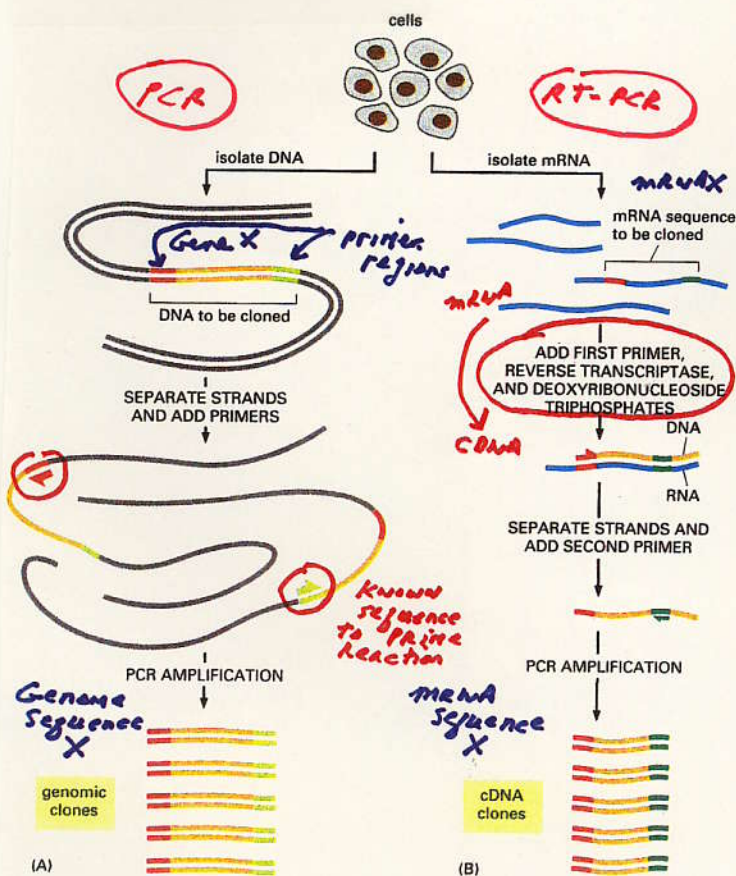 cells
PCR
RT-PCR
isolate DNA
isolate mRNA
mRNAX
Gene X
primer
regions
mRNA sequence
to be cloned
DNA to be cloned
mRNA
ADD FIRST PRIMER,
REVERSE TRANSCRIPTASE,
AND DEOXYRIBONUCLEOSIDE
TRIPHOSPHATES
SEPARATE STRANDS
AND ADD PRIMERS
CDNA
DNA
RNA
SEPARATE STRANDS AND
ADD SECOND PRIMER
Known
sequence
to PRime
Reaction
PCR AMPLIFICATION
PCR AMPLIFICATION
Genome
sequence
X
mRNA
sequence
X
genomic
clones
cDNA
clones
(A)
(B)